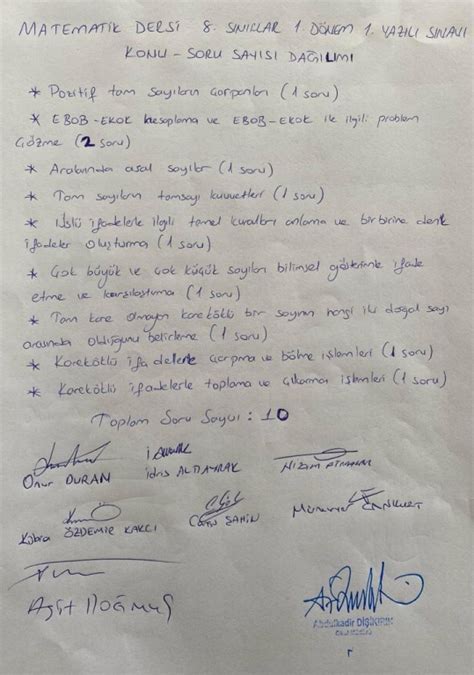 MATEMATİK DERSİ 8. SINIFLAR 1. DÖNEM 1. YAZILI SINAVI
KONU - SORU SAYISI DAĞILIMI
* Pozitif tam sayıların çarpanları (1 soru)
* EBOB-EKOK hesaplama ve EBOB-EKOK ile ilgili problem
çözme (2 soru)
* Aralarında asal sayılar (1 soru)
* Tam sayıların tamsayı kuvvetleri (1 soru)
* Üslü ifadelerle ilgili temel kuralları anlama ve birbirine denk
ifadeler oluşturma (1 soru)
* Çok büyük ve çok küçük sayıları bilimsel gösterimle ifade
etme ve karşılaştırma (1 soru)
* Tam kare olmayan kareköklü bir sayının hangi iki doğal sayı
arasında olduğunu belirleme (1 soru)
* Kareköklü ifadelerle çarpma ve bölme işlemleri (1 soru)
* Kareköklü ifadelerle toplama ve çıkarma işlemleri (1 soru)
Toplam Soru Sayısı : 10
Onur DURAN İdris ALBAYRAK Nizam
Kübra ÖZDEMİR KAKCI ŞAHİN
Abdulkadir DİŞİKIRIK